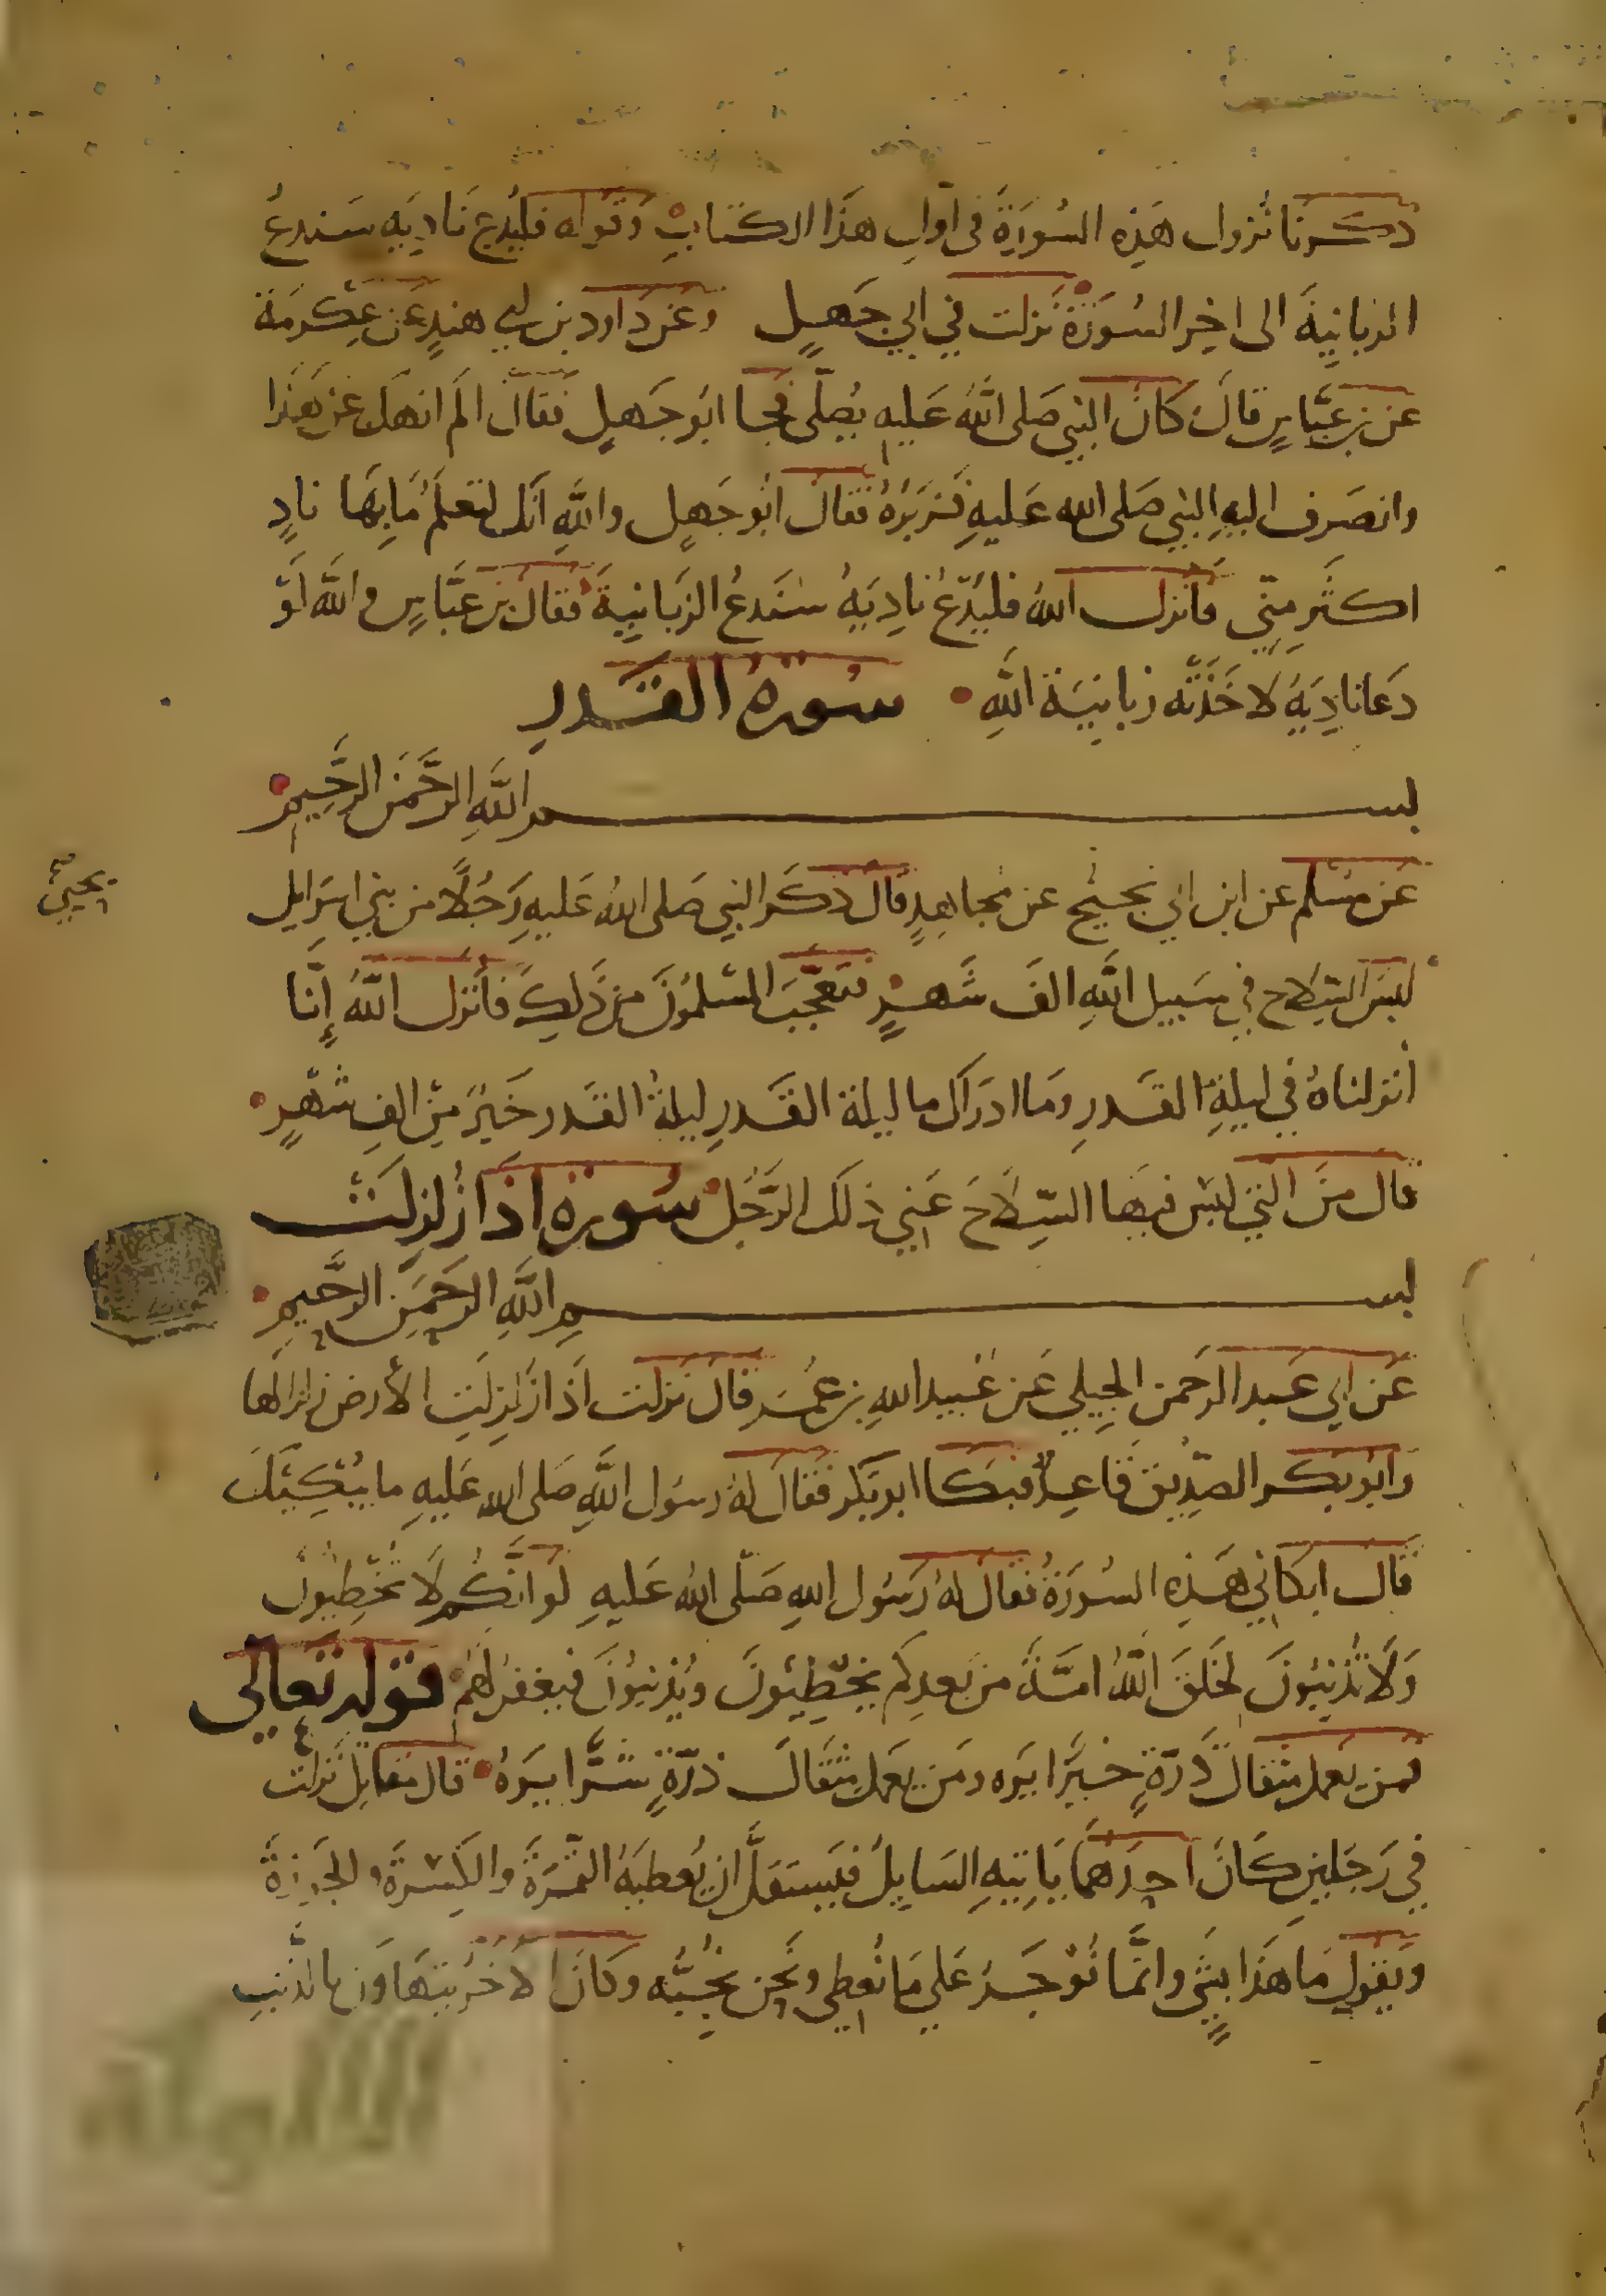 ذكرنا نزول هَذِه السُورَةِ فى اوّل هذَا الكتابِ وقوله فليَدع نَاديَه سَندعُ
الزبانِيةَ الى اخِر السُورَةِ نزلت في ابي جَهلٍ وعَن داود بن ابي هندٍ عَن عِكرمَةَ
عن بن عبَّاسٍ قالَ كانَ النبي صَلى اللهُ عَليه يُصلّى فجا ابُو جَهلٍ فقالَ الَم انهكَ عَن هَذا
وانصَرف اليهِ النبي صَلى الله عَليهِ فَزَبَرَهُ فقال ابُو جَهلٍ واللهِ انك لتَعلَمُ مَا بِهَا نادٍ
اكثَر مِنّي فَانزل اللهُ فليَدّعُ نادِيَهُ سَنَدعُ الزبَانِيةَ فقال بن عبَّاسٍ والله لَوْ
دَعا نادِيَهُ لاخَذَتْه زبانيَة اللهِ سُورة القَدرِ
بسم اللهِ الرحمَن الرحيم
عَن مسْلم عن ابن ابي نجيح عن مجاهدٍ قال ذكَر النبي صَلى اللهُ عَليهِ رَجُلًا من بني اسَرايل
يحيى
لبسَ السِّلاح في سَبيل اللهِ الفَ شَهرٍ فتعجّبَ المسْلمُونَ من ذَلِكَ فأنزل اللهُ إِنَّا
أنزلناهُ في ليلةِ القَدرِ ومَا ادرَاك ما ليلة القَدرِ ليلةُ القَدر خَيرٌ مِن الفِ شهْرٍ
قال منَ التي لبسَ فيهَا السِّلاَحَ عَني ذلك الرَّجُل سُورة اذا زُلزلَت
بسم اللهِ الرحمَن الرحيم
عَن ابي عَبد الرحمن الجبلي عَن عُبيد اللهِ بن عمُر قالَ نزلت اذَا زلزلَتِ الأرض زلزالها
وابُو بكر الصِدّيق قَاعِدٌ فبكا ابو بَكر فقال لهُ رسُول اللهِ صَلى الله عَليهِ ما يُبْكِيكَ
قال ابكاني هَذِه السُورَةُ فقال لهُ رَسُول اللهِ صَلّى اللهُ عَليهِ لو انَّكُم لَا تُخْطِئُون
وَلَا تُذنِبُونَ لخلَقَ اللهُ امَّةً من بَعدِكم يخطِئُونَ ويُذنِبُونَ فيَغفرُ لهُم قوله تعالى
فمن يعمَل مثقالَ ذرّةٍ خَيرًا يرَه ومَن يعمَل مِثقَالَ ذرّةٍ شَرًّا يَرَهُ قال مقاتل نَزلَت
في رَجلينِ كَانَ احدهُمَا يَاتِيهِ السَايِلُ فيَستَقلَّ ان يُعطيَهُ التَّمرَةَ والكِسْرَةَ والجَوزةَ
ويَقول مَا هَذا بِشَي وانّما نُوجَرُ عَلى مَا نُعطِي ونَحن نحُبُّه وكانَ الاخر يتهَاوَن بالذّنبِ